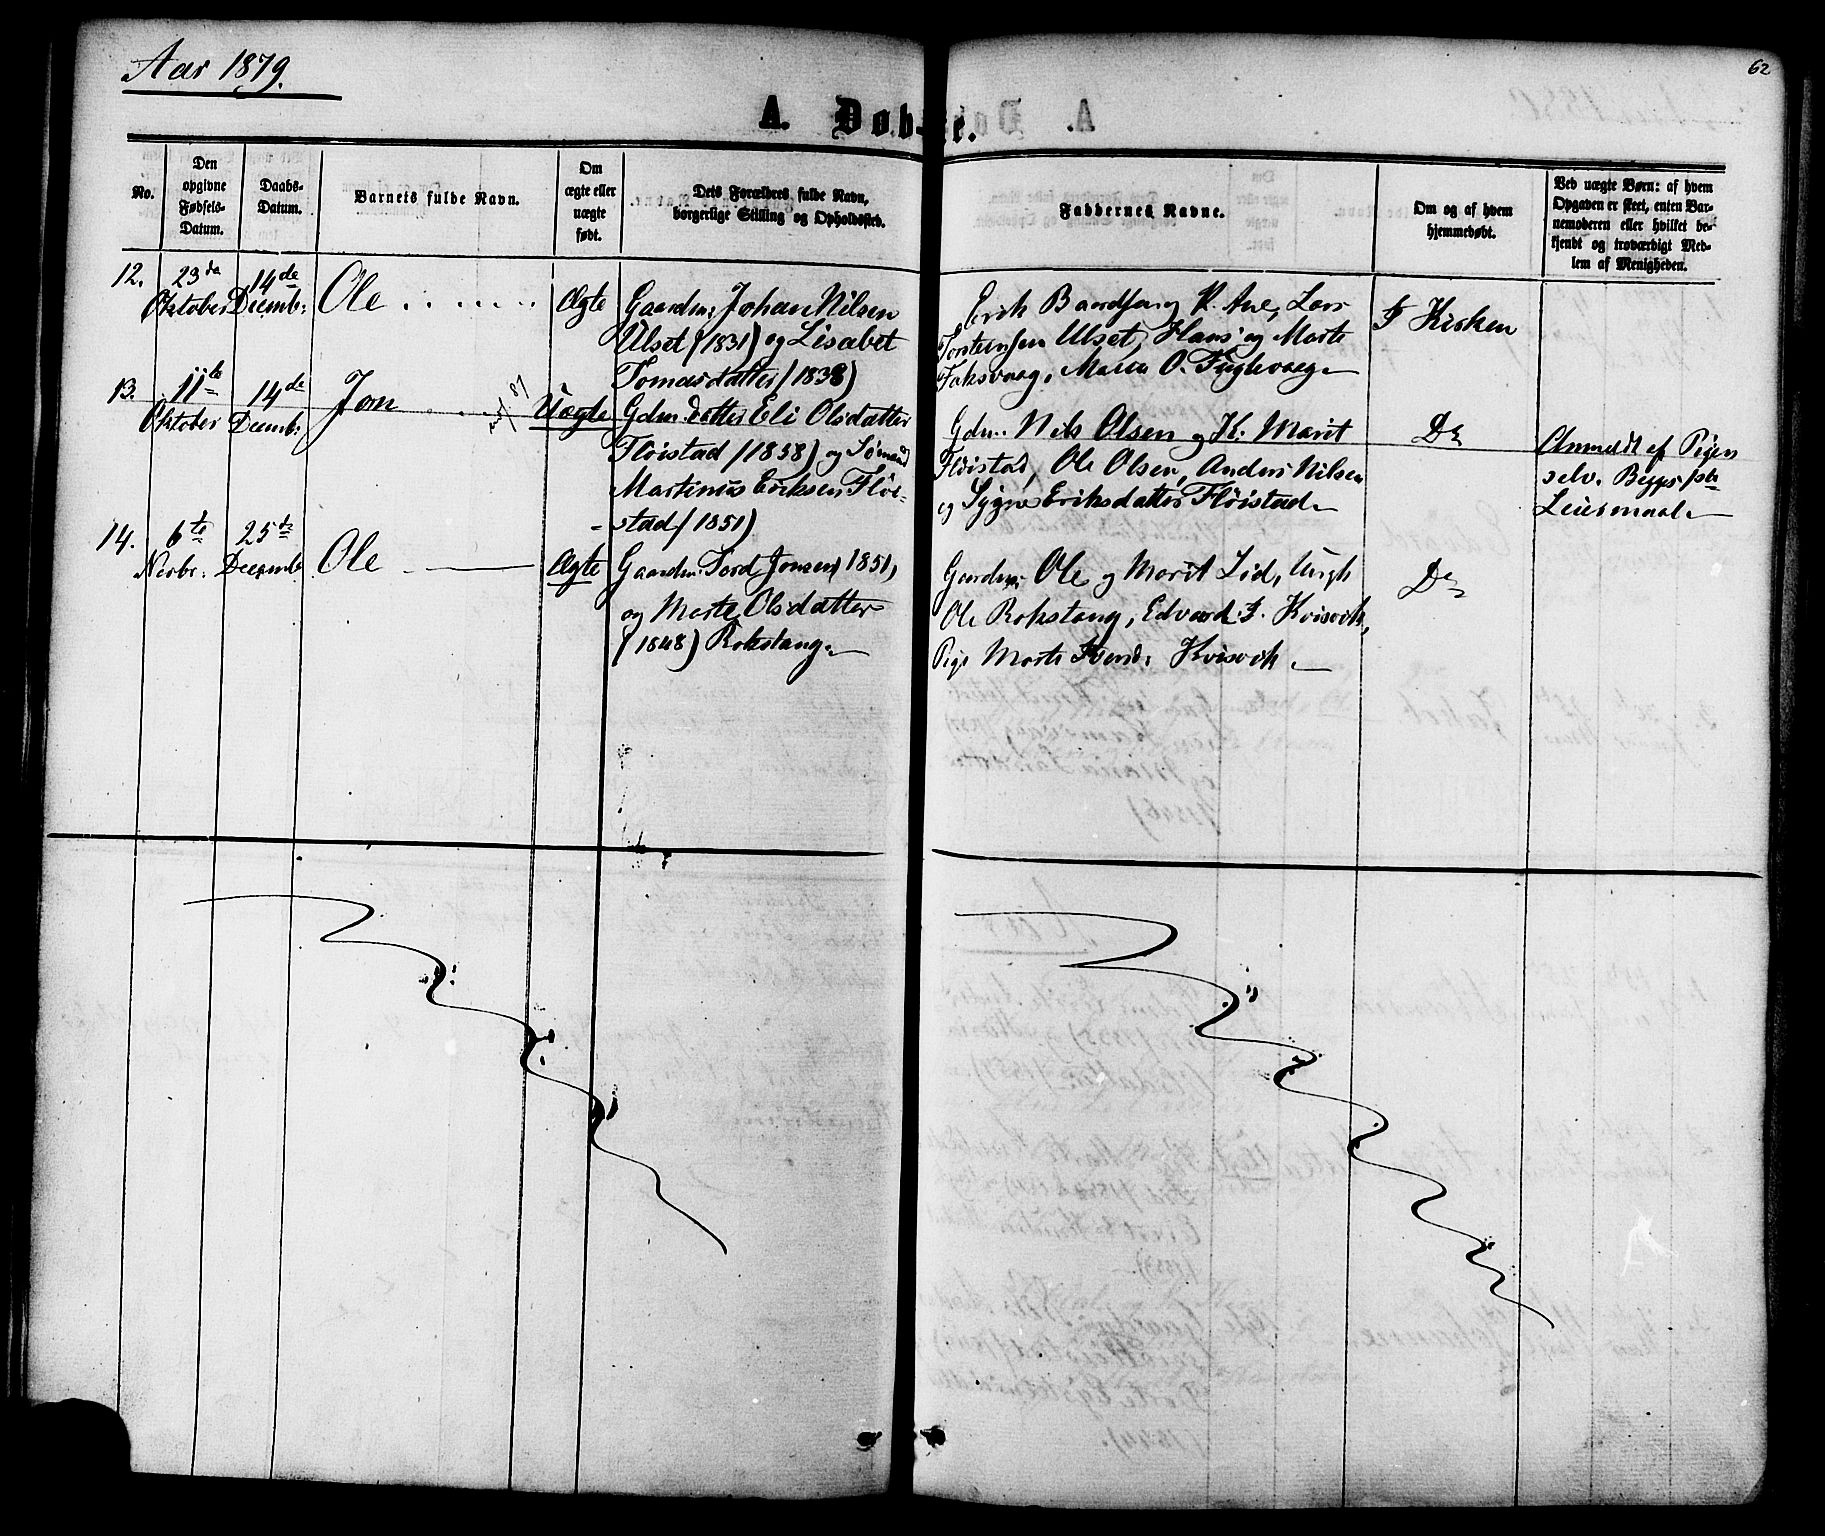 Aar 1879.
62
A. Døb-te.
No.
Den
opgivne
Fødsels-
Datum.
Daabs-
Datum.
Barnets fulde Navn.
Om
ægte eller
uægte
født.
Dets Forældres fulde Navn,
borgerlige Stilling og Opholdssted.
Faddernes Navne.
Om og af hvem
hjemmedøbt.
Ved uægte Børn: af hvem
Opgaven er skeet, enten Bar-
nemoderen eller hvilket be-
kjendt og troværdigt Med-
lem af Menigheden.
12.
23de
Oktober
14de
Decemb:
Ole
Ægte
Gaardm: Johan Nilsen
Ulset (1831) og Lisabet
Tomasdatter (1838)
Erik Baardsen og K. Ane, Lars
Torstensen Ulset, Hans og Marte
Foksvaag, Maren O. Fuglvaag
I Kirken
13.
11te
Oktober
14de
Decemb:
Jon
Uægte
Gdm. datter Eli Olsdatter
Fløistad (1858) og Sømand
Martinus Eriksen Fløi-
-stad (1851)
Gdm. Nils Olsen og K: Marit
Fløistad, Ole Olsen, Anders Nilsen
og Sygni Eriksdatter Fløistad
Do
Anmeldt af Pigen
selv. Begges 1ste
Leiermaal
14.
6te
Novbr.
25de
Decemb
Ole
Ægte
Gaardm: Tord Jonsen (1851)
og Marte Olsdatter
(1848) Rokstang
Gaardm: Ole og Marit Lod, Ungk
Ole Rokstang, Edvard I. Kvisvik,
Pige Marte Svend: Kvisvik
Do